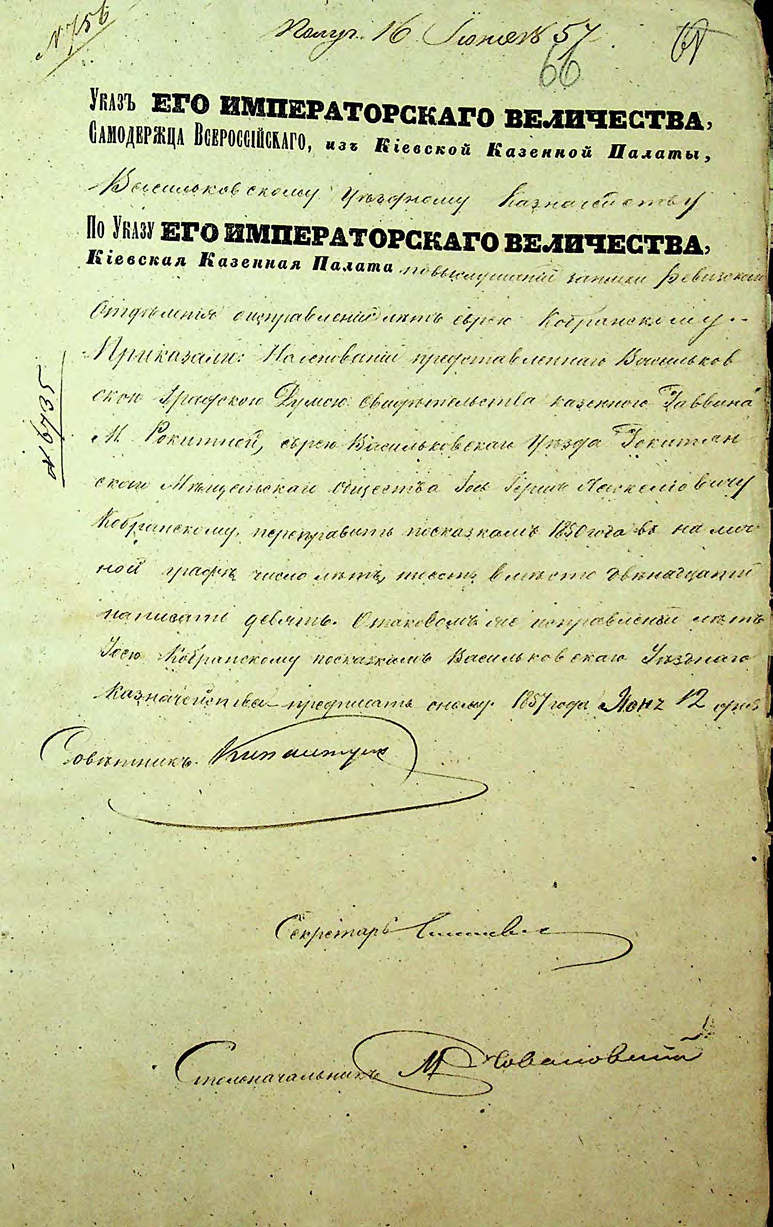 N 756
Получ. 16 Іюня 57
66
Указъ ЕГО ИМПЕРАТОРСКАГО ВЕЛИЧЕСТВА,
Самодержца Всероссійскаго, изъ Кіевской Казенной Палаты,
Васильковскому Уѣздному Казначейству
По Указу ЕГО ИМПЕРАТОРСКАГО ВЕЛИЧЕСТВА,
Кіевская Казенная Палата по выслушаніи записки Ревизскаго
Отдѣленія о исправленіи лѣтъ еврею Кобранскому
Приказали: На основаніи представленнаго Васильков
скою Градскою Думою свидѣтельства казеннаго Раввина
М. Рокитной, еврею Васильковскаго Уѣзда Рокитян
скаго Мѣщанскаго Общества
Кобранскому, переправить по сказкамъ 1850 года въ на лич
ной графѣ число лѣтъ, вмѣсто двѣнадцати
написать девять. О таковомъ же исправленіи лѣтъ
Іосю Кобранскому по сказкамъ Васильковскаго Уѣзднаго
Казначейства предписать оному. 1857 года Іюня 12 дня
Совѣтникъ
Секретарь
Столоначальникъ М